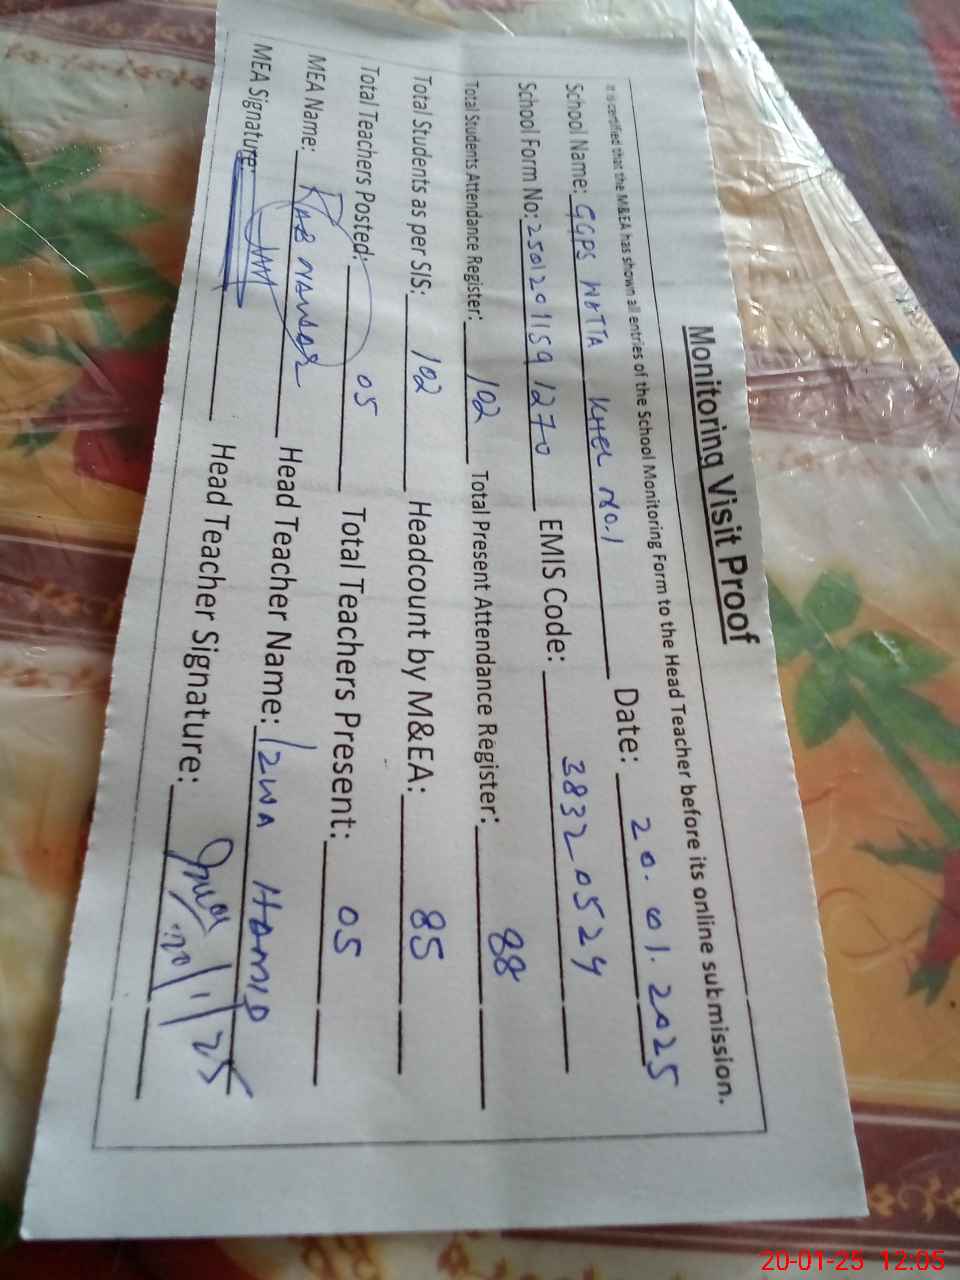 Monitoring Visit Proof
It is certified that the M&EA has shown all entries of the School Monitoring Form to the Head Teacher before its online submission.
School Name: GGPS WATTA KHEL NO.1 Date: 20.01.2025
School Form No: 2501201159 1270 EMIS Code: 38320524
Total Students Attendance Register: 102 Total Present Attendance Register: 88
Total Students as per SIS: 102 Headcount by M&EA: 85
Total Teachers Posted: 05 Total Teachers Present: 05
MEA Name: RAB NAWAZ Head Teacher Name: IZWA HAMID
MEA Signature: Head Teacher Signature:
20-01-25 12:05